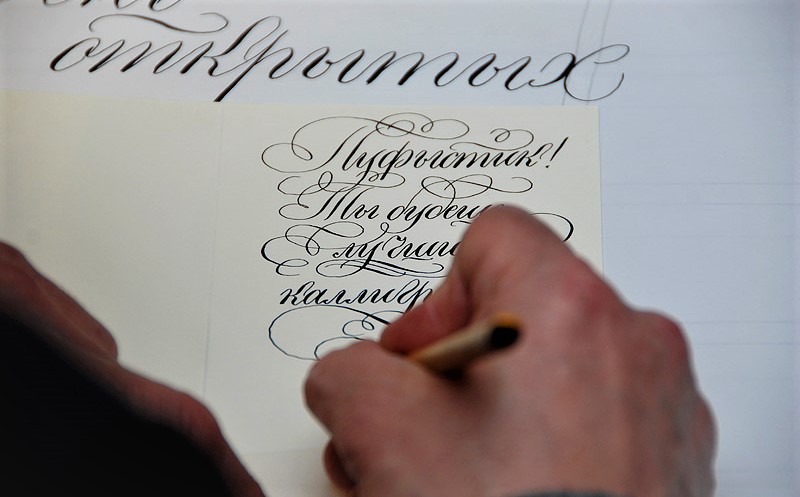 открытых
Пуфыстик!
Ты будеш
лучши
каллигр